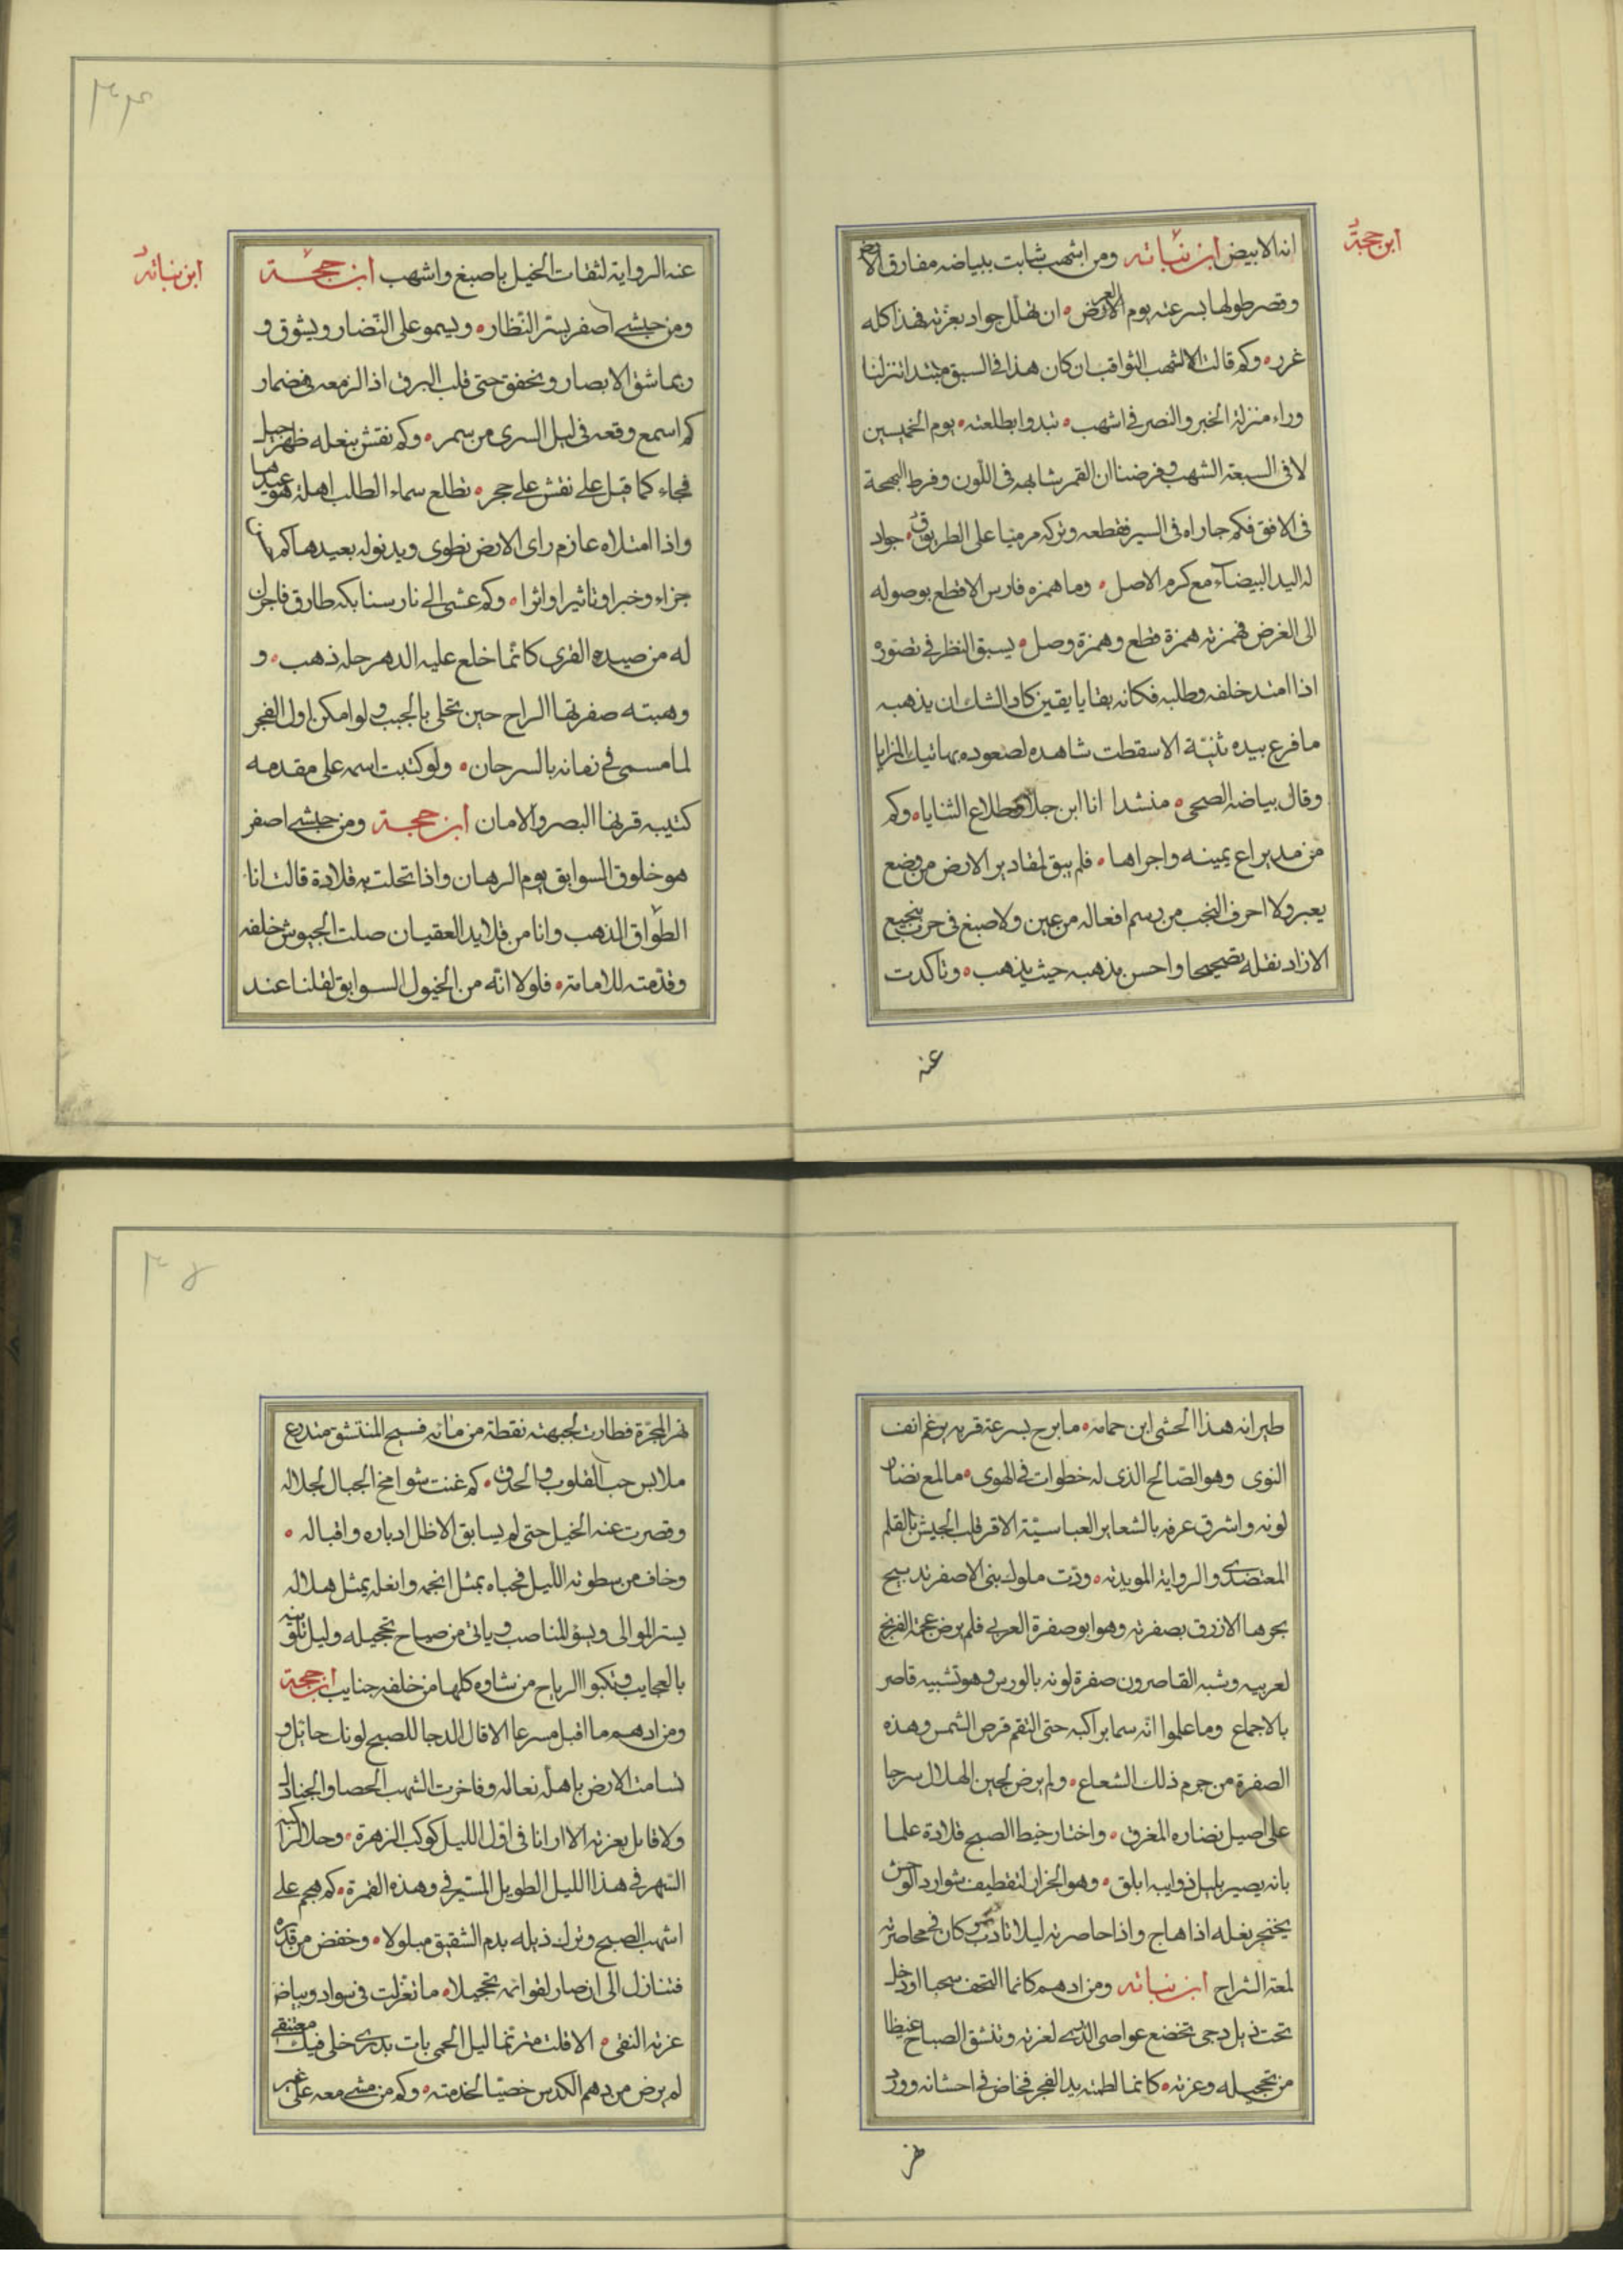 ابن حجة
انه الابيض ابن نباته ومن اشهب شابت ببياضه مفارق الارض
وقصر طولها بسرعته يوم العرض ان تهلل جواد بعزته فهذا كله
غرر وكم قالت الشهب الثواقب ان كان هذا فى السبق مبتدا تنزلنا
وراء منزلة الخبر والنصر فى اشهب تبدوا بطلعته يوم الخميسين
لا فى السبعة الشهب وفرضنا ان القمر شابهه فى اللون وفرط البهجة
فى الافق فكم جاراه فى السير فقطعه وتركه مرميا على الطريق جواد
له اليد البيضآء مع كرم الاصل وما همزه فارس الا قطع بوصوله
الى الغرض فهمزته همزة قطع وهمزة وصل يسبق النظر فى تصوره
اذا امتد خلفه وطلبه فكانه بقايا يقين كاد الشك ان يذهبه
ما فرع بيده ثنية الا سقطت شاهده لصعوده بهاتيك المزايا
وقال بياضه الصحى منشدا انا ابن جلا وطلاع الثنايا وكم
من مد يراع يمينه واجراها فلم يبق لمقادير الارض من وضع
يعبر ولا احرف النجب من رسم افعاله من عين ولا صبغ فى حرب بنجيع
الا زاد نقله تصحيحا واحسن مذهبه حيث يذهب وتاكدت
عنه
ابن نباته
عنه الرواية لثقات الخيل باصبغ واشهب ابن حجة
ومن حبشى اصفر يستر النظار ويسمو على النضار ويشوق و
بما شق الابصار ويخفق حتى قلب البرق اذا لزمعه فى ضمار
كم اسمع وقعه فى ليل السرى من سمر وكم نقش بنعله ظهر جبل
فجاء كما قيل على نقش على حجر تطلع سماء الطلب اهلة هو عيدها
واذا امتلاه عازم راى الارض تطوى ويدنو له بعيدها كم بان
جزاء وخبرا وتاثيرا واثرا وكم عشى الى نار سنابكه طارق فاجزل
له من صيده القرى كانما خلع عليه الدهر حلة ذهب و
وهبته صفرتها الراح حين تحلى بالحبب ولو امكن اول الفجر
لما مسمى فى زمانه بالسرحان ولو كتبت اسمه على مقدمه
كتيبه قرنها البصر والامان ابن حجة ومن حبشى اصفر
هو خلوق السوابق يوم الرهان واذا تحلت به قلادة قالت انا
الطواق الذهب وانا من قلايد العقيان صلت الجيوش خلفه
وقدمته للامامة فلولا انه من الخيول السوابق لقلنا عند
طيرانه هذا الحشى ابن حمامه ما برح بسرعة قربه يرغم انف
النوى وهو الصالح الذى له خطوات فى الهوى ما لمع نضار
لونه واشرق عرفه بالشعاير العباسية الا قر قلب الجيش بالقلم
المعتضدى والرواية المويديه ودت ملوك بنى الاصفر تدبيج
بحرها الازرق بصفرته وهو ابو صفرة العربى فلم يرض عجمة الفرنج
لعربيه وشبه القاصرون صفرة لونه بالورس وهو تشبيه قاصر
بالاجماع وما علموا انه سما براكبه حتى التقم قرص الشمس وهذه
الصفرة من جرم ذلك الشعاع ولم يرض لجين الهلال سرجا
على اصيل نضاره المغرق واختار خيط الصبح قلادة علما
بانه يصير بليل ذوايبه ابلق وهو الجزار لتقطيف شوارد الوحش
بخنجر نعله اذا هاج واذا حاصرته ليلا تادب كان فى محاصرته
لمعة السراج ابن نباته ومن ادهم كانما التحف سحبا او دخل
تحت ذيل دجى تخضع عواصى الذرى لغرته وتنشق الصباح غيظا
من تحجيله وعزته كانما لطمته يد الفجر فخاض فى احشانه وورد
نهر
نهر المجرة فطارت لجبهته نقطة من مائه فسيح المنتشق متدرع
ملابس حب القلوب والحدق كم غنت شوامخ الجبال لجلاله
وقصرت عنه الخيل حتى لم يسابق الا ظل ادباره واقباله
وخاف من سطوته الليل فحباه بمثل انجمه وانعله بمثل هلاله
يستر الموالى ويسؤ المناصب وياتى من صباح تحجيله وليل تلونه
بالعجايب وتكبوا الرياح من شاوه كلها من خلفه جنايب ابن حجة
ومن ادهم ما اقبل مسرعا الا قال الدجا للصبح لونك حائل و
تسامت الارض باهلة نعاله وفاخرت الشهب الحصا والجنادل
ولا قابل بعزته الا ارانا فى اول الليل كوكب الزهرة وحلا لراكبه
السهر فى هذا الليل الطويل المستير فى وهذه القمرة كم هجم على
اشهب الصبح وترك ذيله بدم الشفيق مبلولا وخفض من قدره
فتنازل الى ان صار لقوائمه تحجيلا ما تغزلت فى سواد وبياض
عزته النقى الا قلت مترنما ليل الحمى بات بدرى خلى فيك معتنقى
لم يرض من دهم الكدس خصيا لخدمته وكم من مشى معه على غير